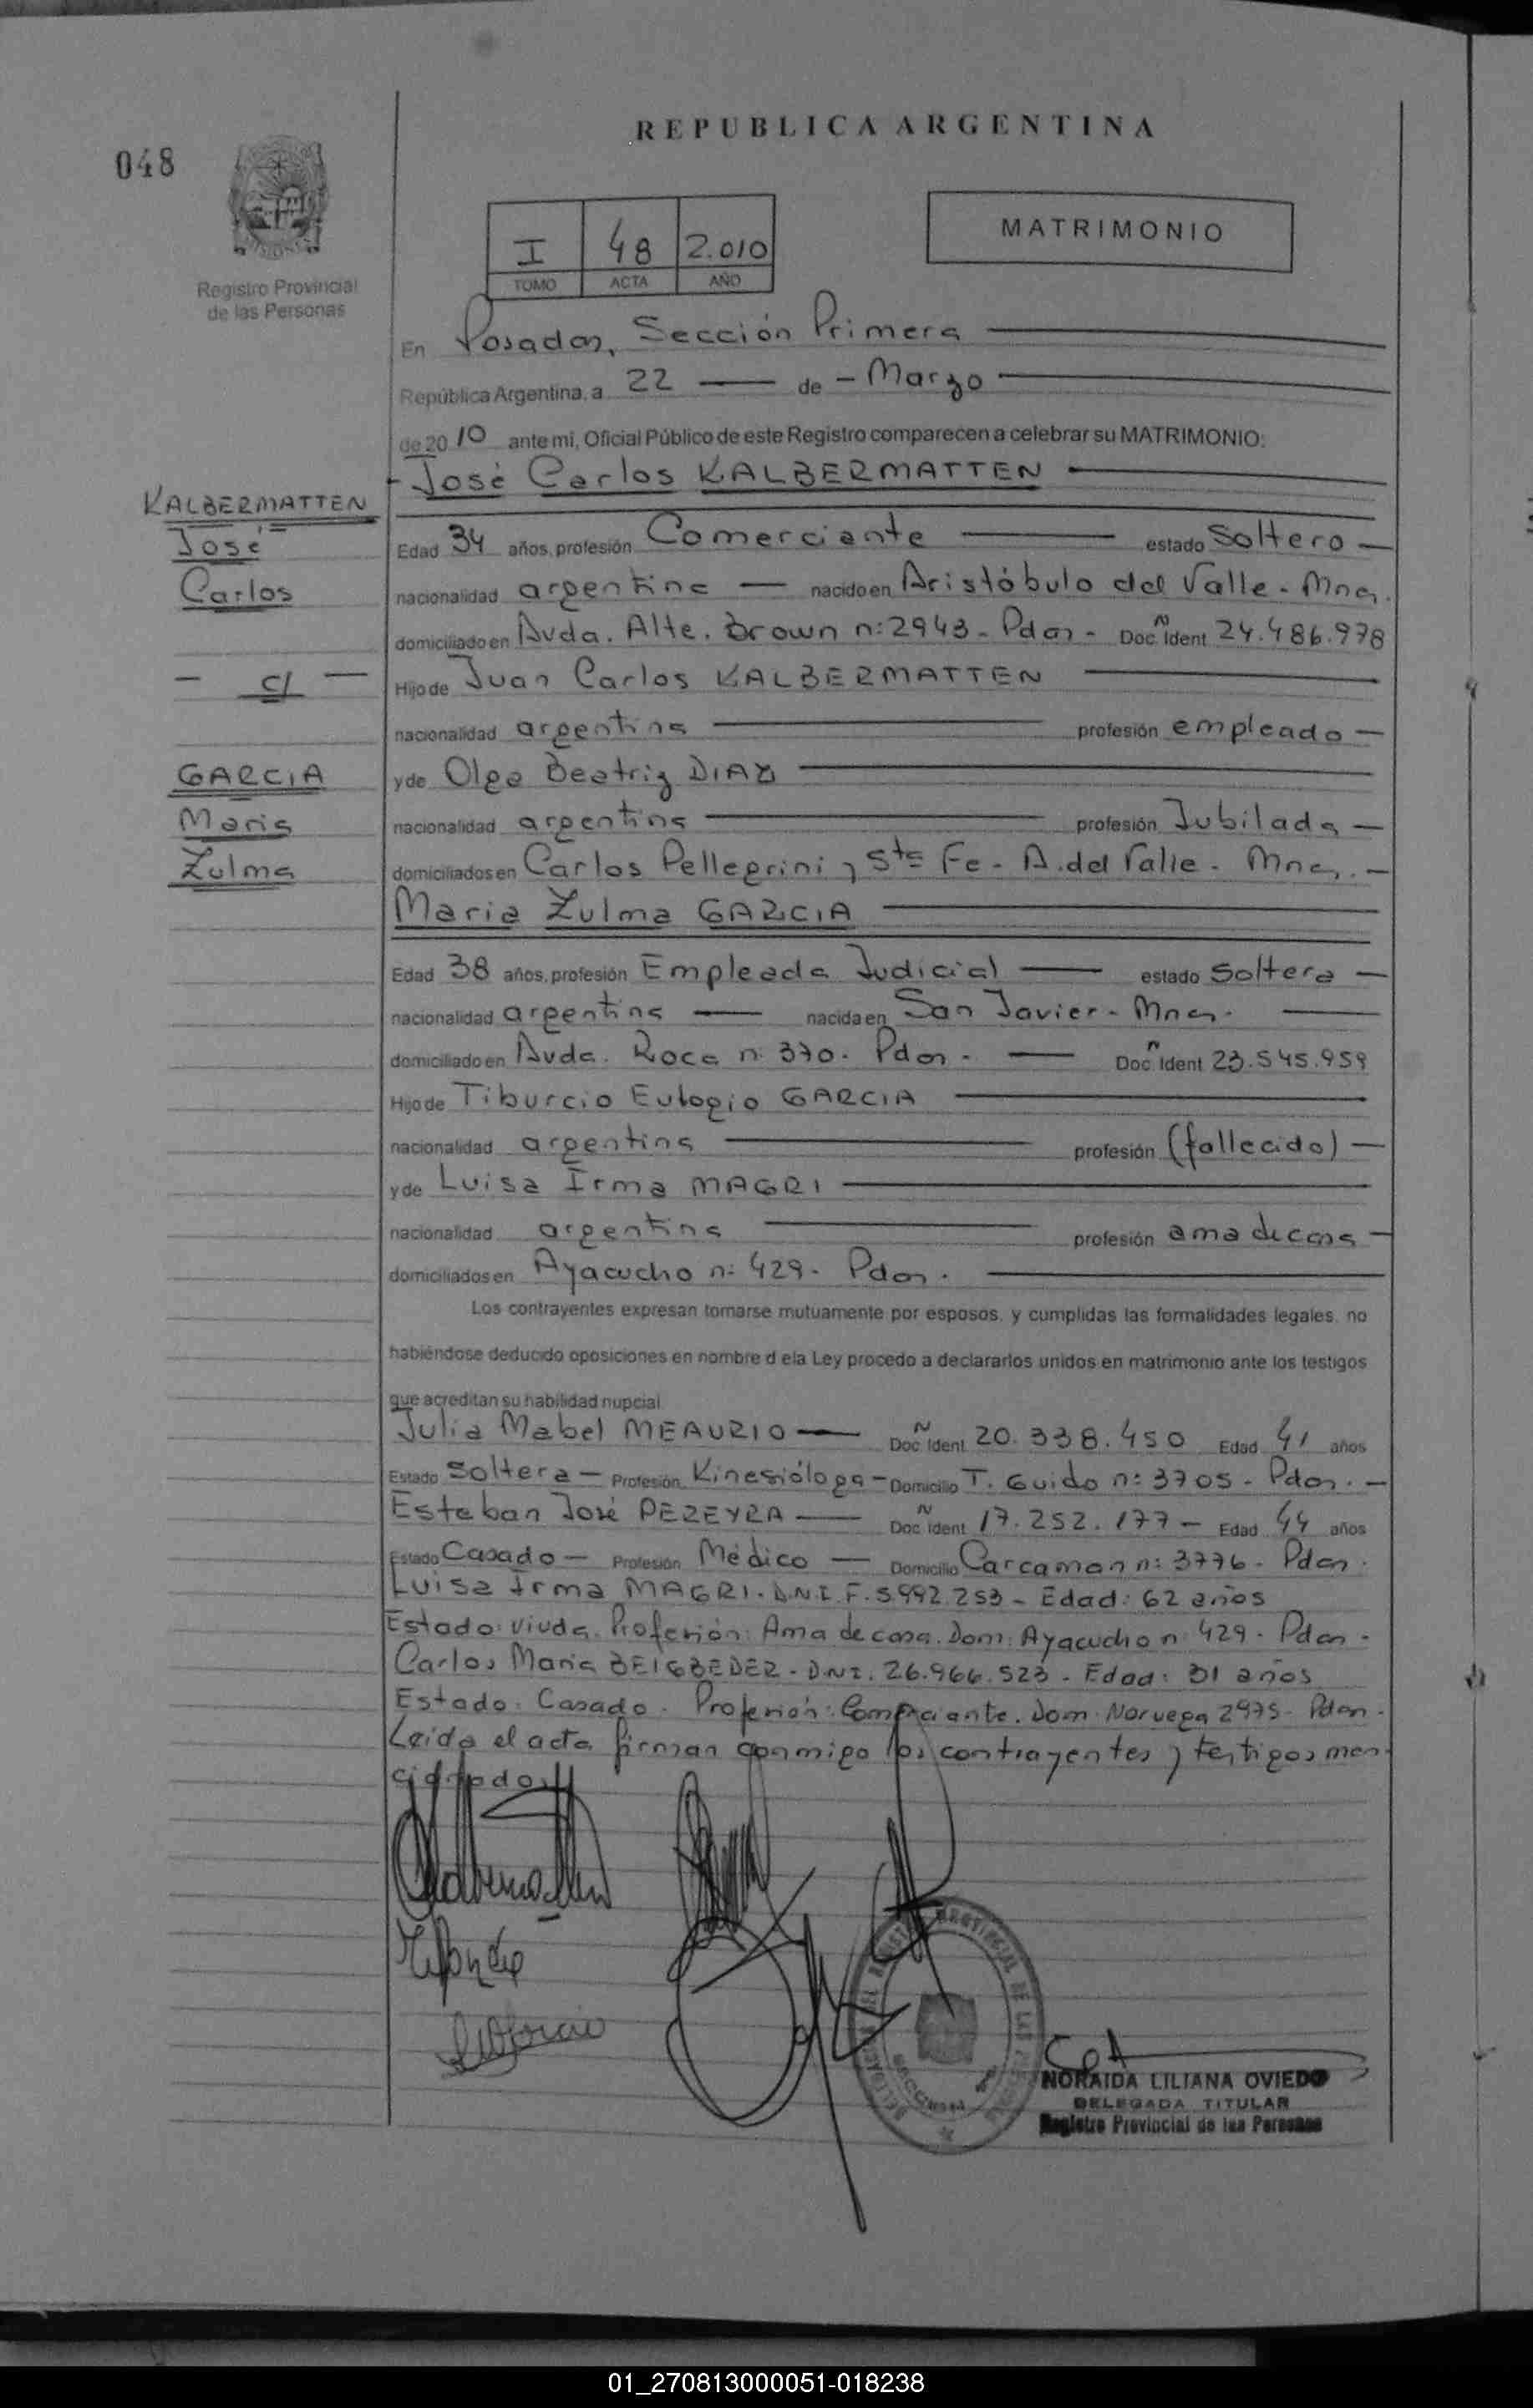 REPUBLICA ARGENTINA
048
MATRIMONIO
I 48 2.010
TOMO ACTA AÑO
Registro Provincial
de las Personas
En Posadas, Sección Primera
República Argentina, a 22 de - Marzo
de 20 10 ante mi, Oficial Público de este Registro comparecen a celebrar su MATRIMONIO:
- José Carlos KALBERMATTEN
KALBERMATTEN
José
Carlos
- c/ -
GARCIA
Maria
Zulma
Edad 34 años, profesión Comerciante estado Soltero -
nacionalidad argentina - nacido en Aristóbulo del Valle - Mnes.
domiciliado en Avda. Alte. Brown n: 2943 - Pdas - Doc. N Ident 24.486.978
Hijo de Juan Carlos KALBERMATTEN
nacionalidad argentina profesión empleado -
y de Olga Beatriz DIAZ
nacionalidad argentina profesión Jubilada -
domiciliados en Carlos Pellegrini y Sta Fe - A. del Valle - Mnes. -
Maria Zulma GARCIA
Edad 38 años, profesión Empleada Judicial estado Soltera -
nacionalidad argentina - nacida en San Javier - Mnes.
domiciliado en Avda. Roca n: 370 - Pdas - Doc. N Ident 23.545.959
Hijo de Tiburcio Eulogio GARCIA
nacionalidad argentina profesión (fallecido) -
y de Luisa Irma MAGRI
nacionalidad argentina profesión ama de casa -
domiciliados en Ayacucho n: 429 - Pdas.
Los contrayentes expresan tomarse mutuamente por esposos, y cumplidas las formalidades legales, no
habiéndose deducido oposiciones en nombre d ela Ley procedo a declararlos unidos en matrimonio ante los testigos
que acreditan su habilidad nupcial
Julia Mabel MEAURIO - Doc. N Ident 20.338.450 Edad 41 años
Estado Soltera - Profesión Kinesióloga - Domicilio T. Guido n: 3705 - Pdas. -
Esteban José PEREYRA - Doc. N Ident 17.252.177 - Edad 44 años
Estado Casado - Profesión Médico - Domicilio Carcaman n: 3776 - Pdas.
Luisa Irma MAGRI - D.N.I. F. 5.992.253 - Edad: 62 años
Estado: Viuda. Profesión: Ama de casa. Dom: Ayacucho n: 429 - Pdas -
Carlos Maria BEIGBEDER - DNI. 26.966.523 - Edad: 31 años
Estado: Casado. Profesión: Comerciante. Dom: Noruega 2975 - Pdas -
Leida el acta firman conmigo los contrayentes y testigos men-
cionados
NORAIDA LILIANA OVIEDO
DELEGADA TITULAR
Registro Provincial de las Personas
01_270813000051-018238